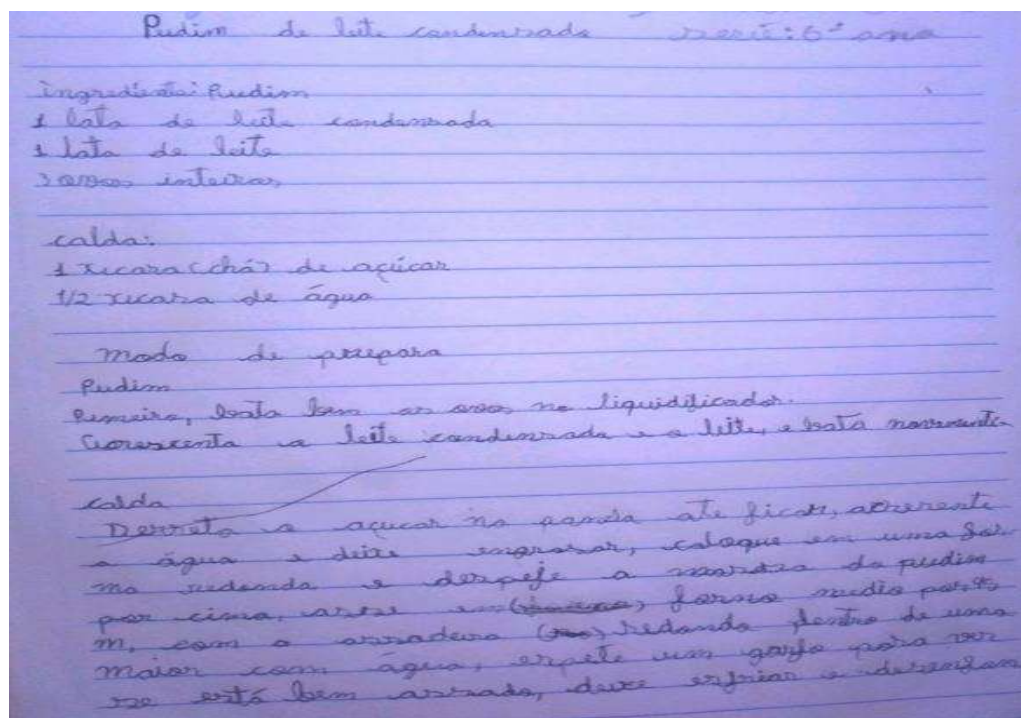 Pudim de leite condensado serie: 6º ano
ingrediente: Pudim
1 lata de leite condensado
1 lata de leite
3 ovos inteiros
calda:
1 xicara (chá) de açúcar
1/2 xicara de água
modo de preparo
Pudim
Primeiro, bata bem os ovos no liquidificador.
Acrescenta o leite condensado e o leite, e bata novamente
calda
Derreta o açucar na panela ate ficar, acrecente
a água e deixe engrosar, coloque em uma for
ma redonda e despeje a massa do pudim
por cima, asse em forno medio por 45
m, com a assadeira redonda dentro de uma
maior com água, espete um garfo para ver
se está bem assado, deixe esfriar e desenfom